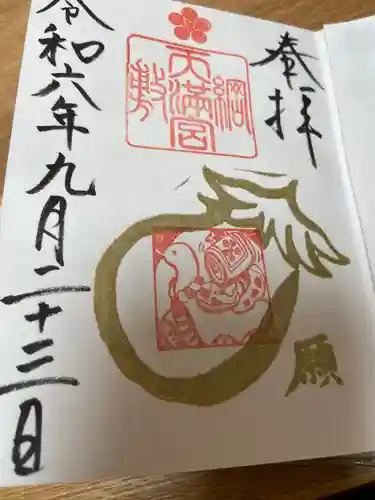 奉拝
綱敷天満宮
願
令和六年九月二十三日